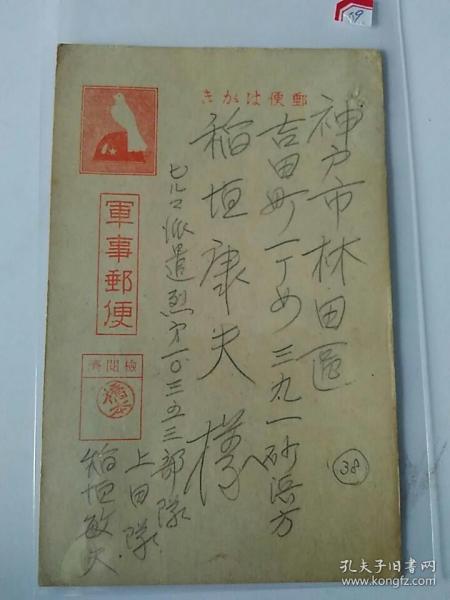 郵便はがき
神戸市林田區
吉田町一丁め三九一砂浜方
稲垣康夫様
ビルマ派遣烈才一〇三五三部隊
上田隊
稲垣敏夫
軍事郵便
檢閲濟
38
59
孔夫子旧书网
www.kongfz.com